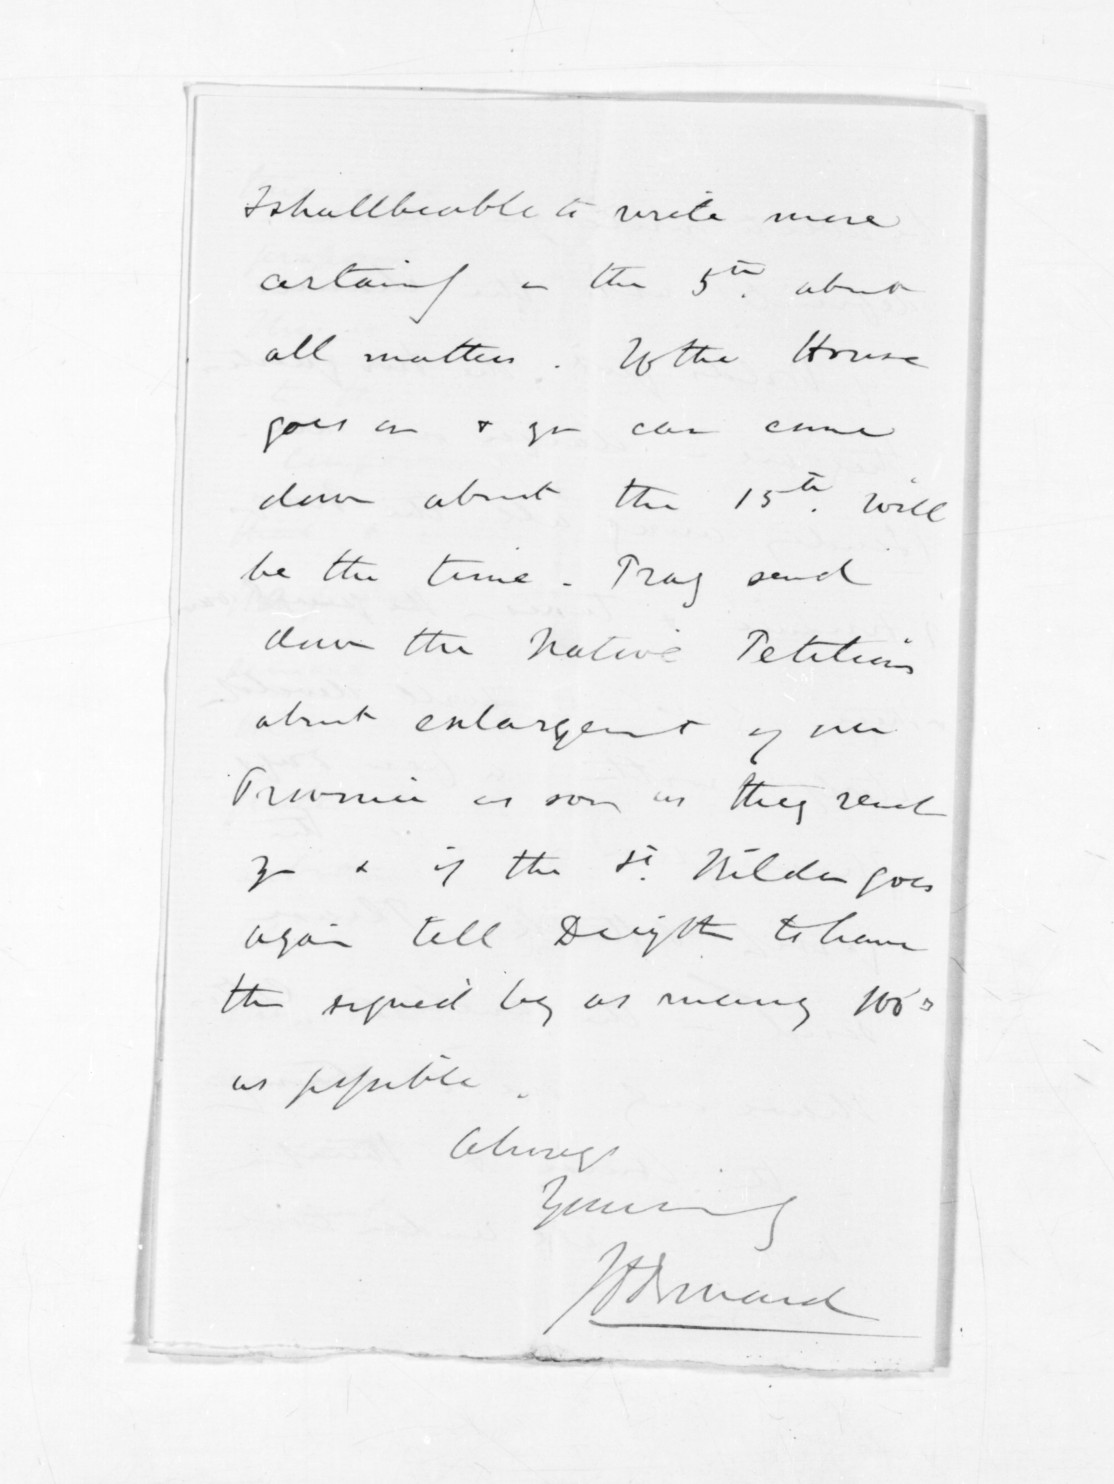 I shall be able to write more
certainly on the 5th. about
all matters. If the House
goes on & you can come
down about the 15th. will
be the time. Pray send
down the Native Petitions
about enlargement of our
Province as soon as they reach
you & if the St. Kilda goes
again tell Deighton to have
them signed by as many 100s
as possible.
Always
Yours sincerely
J D Ormond